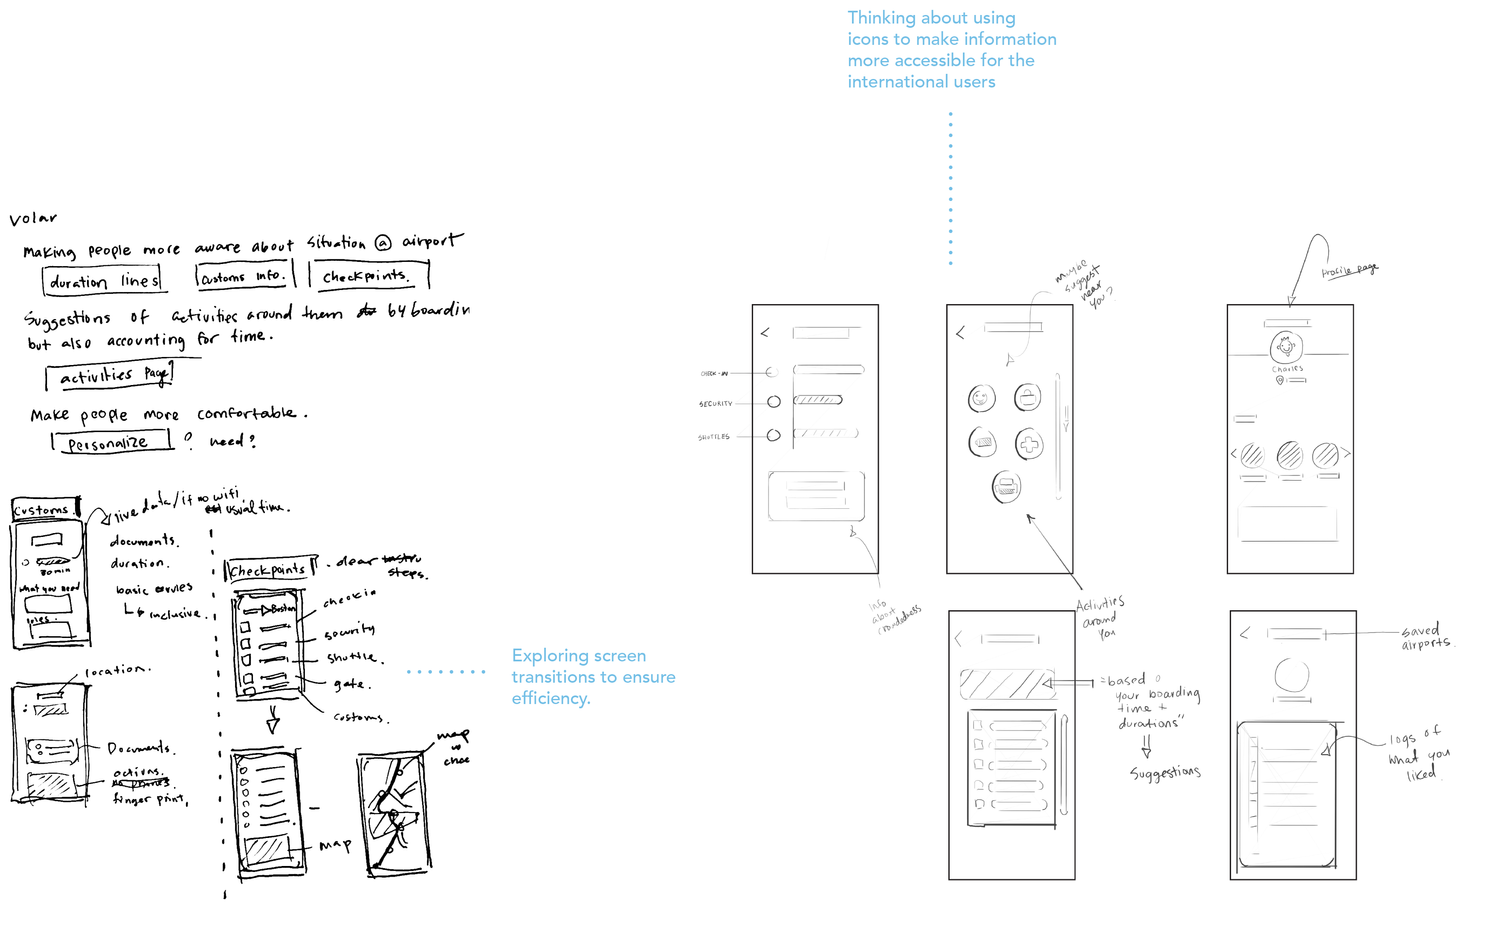 Thinking about using
icons to make information
more accessible for the
international users
Volar
Making people more aware about situation @ airport
duration lines
customs info.
checkpoints.
Suggestions of activities around them by boardin
but also accounting for time.
activities page
Make people more comfortable.
Personalize ? need?
Customs.
live data/if no wifi
usual time.
documents.
duration.
30 min
What you need
basic rules
↳ inclusive.
rules.
location.
Documents.
actions.
finger print,
Checkpoints
- clear
steps.
Boston
check in
security
shuttle.
gate.
customs.
map
map
Exploring screen
transitions to ensure
efficiency.
CHECK-IN
SECURITY
SHUTTLES
info
about
crowdedness
maybe
suggest
near
you?
Activities
around
you
Profile page
Charles
"based
your boarding
time +
durations"
Suggestions
saved
airports.
logs of
what you
liked.